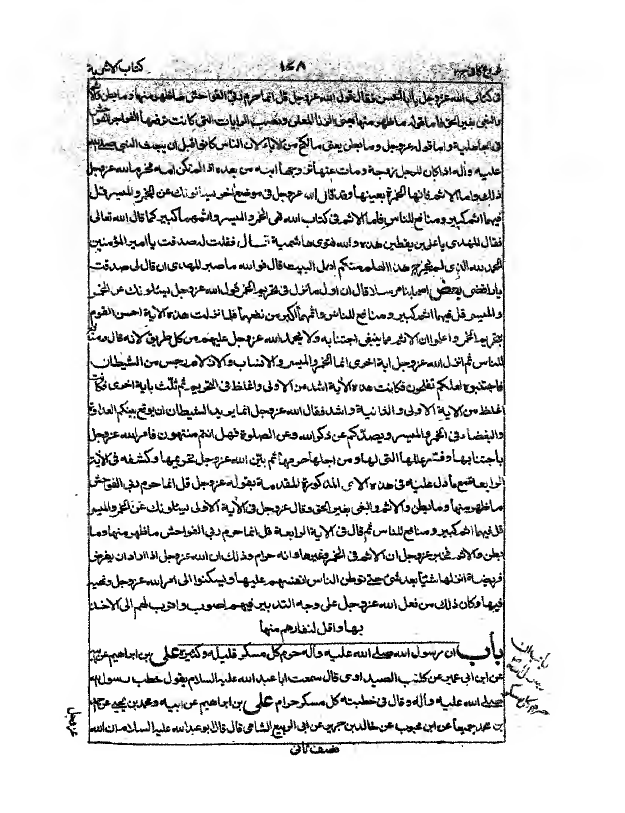 كتاب الاشربة
١٤٨
فى كتاب الله عزوجل يا ابا الحسن فقال قول الله عزوجل قل انما حرم ربى الفواحش ما ظهر منها وما بطن والاثم
والبغى بغير الحق فاما قوله ما ظهر منها يعنى الزنا المعلن ونصب الرايات التى كانت ترفعها الفواجر للفواحش
فى الجاهلية واما قوله عزوجل وما بطن يعنى ما نكح من الاباء لان الناس كانوا قبل ان يبعث النبى صلى الله
عليه وآله اذا كان للرجل زوجة ومات عنها تزوجها ابنه من بعده اذا لم تكن امه فحرم الله عزوجل
ذلك واما الاثم فانها الخمرة بعينها وقد قال الله عزوجل فى موضع اخر يسألونك عن الخمر والميسر قل
فيهما اثم كبير ومنافع للناس فاما الاثم فى كتاب الله فهى الخمر والميسر واثمهما كبير كما قال الله تعالى
فقال المهدى يا على بن يقطين هذه والله فتوى هاشمية قال فقلت له صدقت يا امير المؤمنين
الحمد لله الذى لم يخرج هذا العلم منكم اهل البيت قال فو الله ما صبر المهدى ان قال لى صدقت
يا رافضى بعض اصحابنا مرسلا قال ان اول ما نزل فى تحريم الخمر قول الله عزوجل يسئلونك عن الخمر
والميسر قل فيهما اثم كبير ومنافع للناس واثمهما اكبر من نفعهما فلما نزلت هذه الآية احس القوم
بتحريم الخمر وعلموا ان الاثم مما ينبغى اجتنابه ولا يحمل الله عزوجل عليهم من كل طريق لانه قال ومنافع
للناس ثم انزل الله عزوجل اية اخرى انما الخمر والميسر والانصاب والازلام رجس من عمل الشيطان
فاجتنبوه لعلكم تفلحون فكانت هذه الآية اشد من الاولى واغلظ فى التحريم ثم ثلّث باية اخرى فكانت
اغلظ من الاية الاولى والثانية واشد فقال الله عزوجل انما يريد الشيطان ان يوقع بينكم العداوة
والبغضاء فى الخمر والميسر ويصدكم عن ذكر الله وعن الصلوة فهل انتم منتهون فامر الله عزوجل
باجتنابها وفسر عللها التى لها ومن اجلها حرمها ثم بين الله عزوجل تحريمها وكشفه فى الآية
الرابعة مع ما دل عليه فى هذه الآى المذكورة المتقدمة بقوله عزوجل قل انما حرم ربى الفواحش
ما ظهر منها وما بطن والاثم والبغى بغير الحق وقال عزوجل فى الآية الاولى يسئلونك عن الخمر والميسر
قل فيهما اثم كبير ومنافع للناس ثم قال فى الاية الرابعة قل انما حرم ربى الفواحش ما ظهر منها وما
بطن والاثم فخبر عزوجل ان الاثم فى الخمر وغيرها وانه حرام وذلك ان الله عزوجل اذا اراد ان يفرض
فريضة انزلها شيئا بعد شئ حتى توطن الناس انفسهم عليها ويسكنوا الى امر الله عزوجل ونهيه
فيها وكان ذلك من فعل الله عزوجل على وجه التدبير فيهم اصوب واقرب لهم الى الاخذ
بها واقل لنفارهم منها
باب ان رسول الله صلى الله عليه وآله حرم كل مسكر قليله وكثيره على بن ابراهيم عن ابيه
عن ابن ابى عمير عن كليب الصيداوى قال سمعت ابا عبد الله عليه السلام يقول خطب رسول الله
صلى الله عليه وآله وقال فى خطبته كل مسكر حرام على بن ابراهيم عن ابيه ومحمد بن يحيى عن احمد
بن محمد جميعا عن ابن محبوب عن خالد بن جرير عن ابى الربيع الشامى قال قال ابو عبد الله عليه السلام ان الله
عزوجل
نصف ثانى